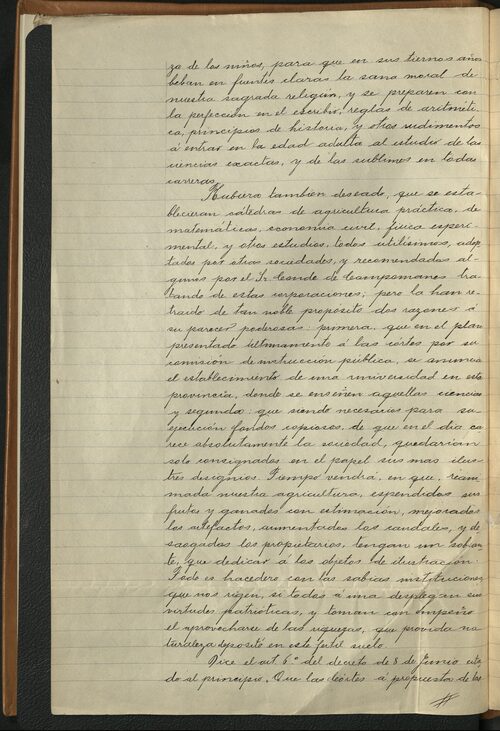 za de los niños, para que en sus tiernos años
beban en fuentes claras la sana moral de
nuestra sagrada religion, y se preparen con
la perfección en el escribir, reglas de aritméti-
ca, principios de historia, y otros rudimentos
á entrar en la edad adulta al estudio de las
ciencias exactas, y de las sublimes en todas
carreras.
Hubiera tambien deseado, que se esta-
blecieran cátedras de agricultura práctica, de
matemáticas, economia civil, fisica esperi-
mental, y otros estudios, todos utilisimos, adop-
tados por otras sociedades, y recomendados al-
gunos por el Sr Conde de Campomanes tra-
tando de estas corporaciones; pero la han re-
traido de tan noble proposito dos razones á
su parecer poderosas: primera, que en el plan
presentado ultimamente á las cortes por su
comisión de instrucción pública, se anuncia
el establecimiento de una universidad en esta
provincia, donde se enseñen aquellas ciencias
y segunda: que siendo necesarios para su
ejecución fondos copiosos, de que en el dia ca
rece absolutamente la sociedad, quedarian
solo consignados en el papel sus mas ilus-
tres designios. Tiempo vendrá, en que, reani
mada nuestra agricultura, espendidos sus
frutos y ganados con estimación, mejorados
los artefactos, aumentados los caudales, y de
saogados los propietarios, tengan un sobran
te, que dedicar á los objetos de ilustración.
Todo es hacedero con las sabias instituciones
que nos rigen, si todos á una desplegan sus
virtudes patrioticas, y toman con empeño
el aprovecharse de las riquezas, que provida na
turaleza depositó en este fertil suelo.
Dice el art 6º del decreto de 8 de Junio cita
do al principio. Que las cortes á propuestas de las